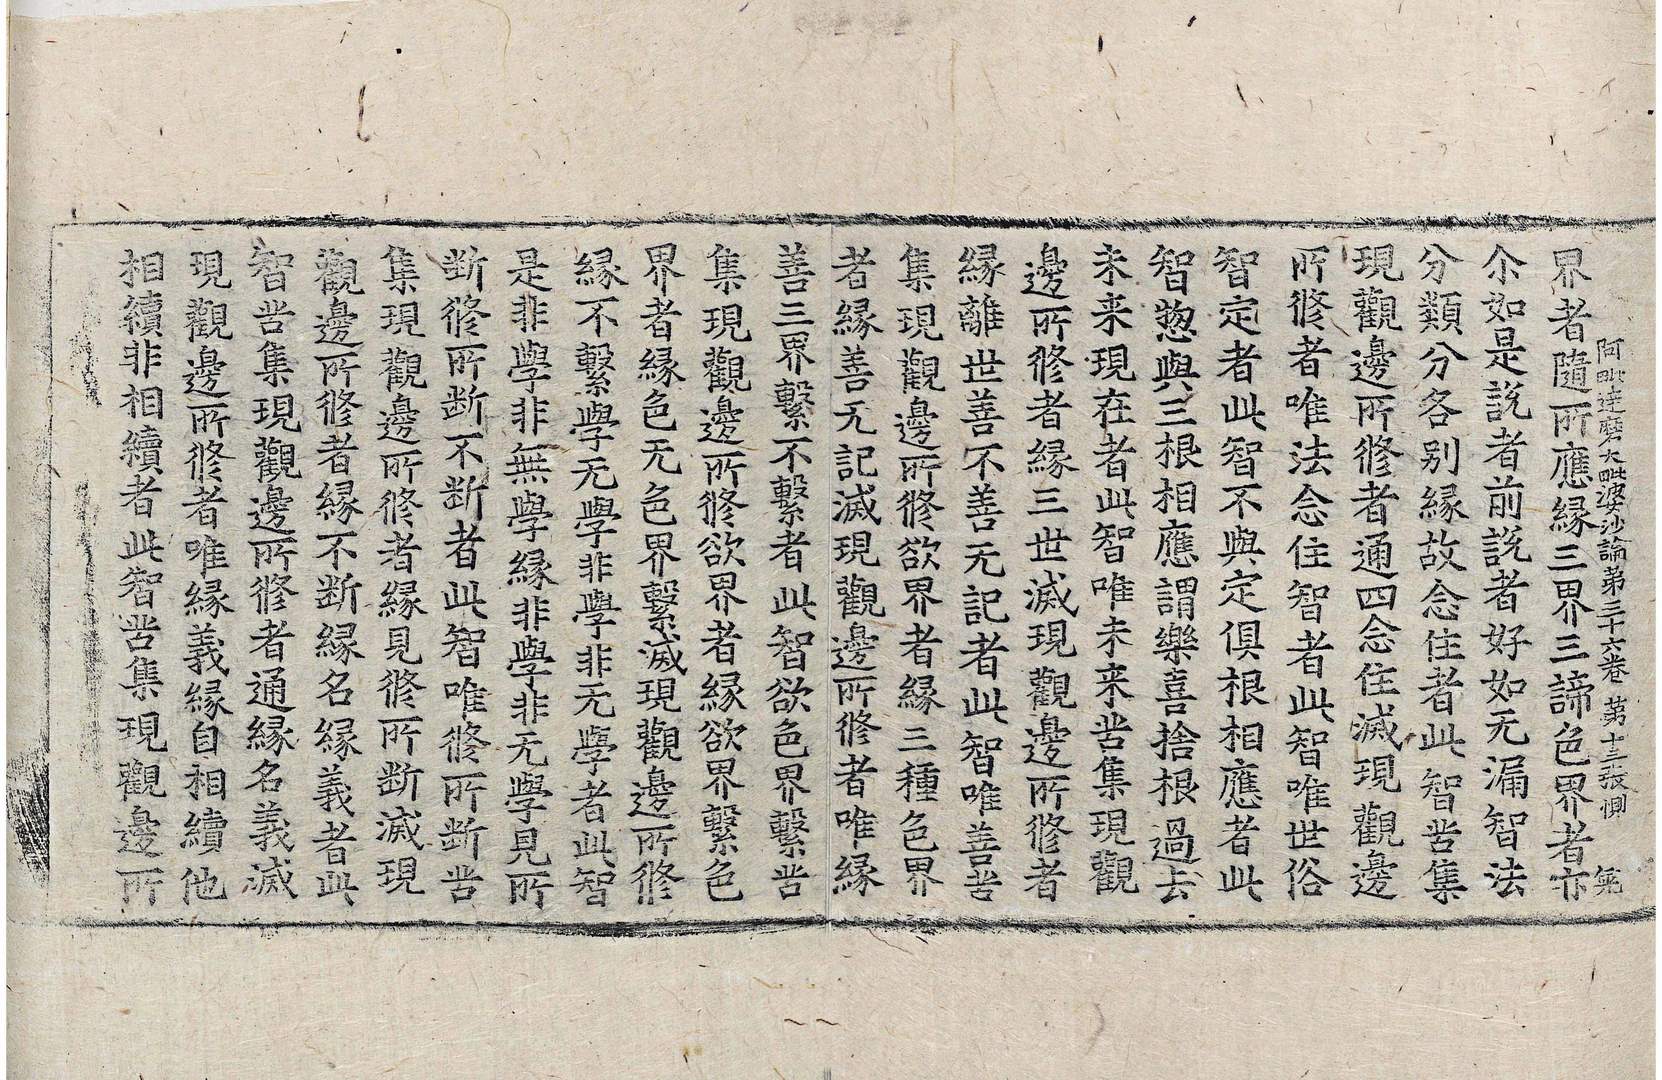 阿毗達磨大毗婆沙論第三十六卷 第十三張 惻
界者隨所應緣三界三諦色界者亦
尒如是說者前說者好如无漏智法
分類分各別緣故念住者此智苦集
現觀邊所修者通四念住滅現觀邊
所修者唯法念住智者此智唯世俗
智定者此智不與定俱根相應者此
智惣與三根相應謂樂喜捨根過去
未来現在者此智唯未来苦集現觀
邊所修者緣三世滅現觀邊所修者
緣離世善不善无記者此智唯善苦
集現觀邊所修欲界者緣三種色界
者緣善无記滅現觀邊所修者唯緣
善三界繫不繫者此智欲色界繫苦
集現觀邊所修欲界者緣欲界繫色
界者緣色无色界繫滅現觀邊所修
緣不繫學无學非學非无學者此智
是非學非無學緣非學非无學見所
断修所断不断者此智唯修所断苦
集現觀邊所修者緣見修所断滅現
觀邊所修者緣不断緣名緣義者此
智苦集現觀邊所修者通緣名義滅
現觀邊所修者唯緣義緣自相續他
相續非相續者此智苦集現觀邊所